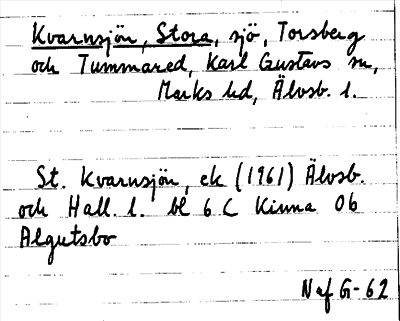 Kvarnsjön, Stora, sjö, Torsberg
och Tummared, Karl Gustavs sn,
Marks hd, Älvsb. l.
St. Kvarnsjön, ek (1961) Älvsb.
och Hall. l. bl 6 C Kinna 0b
Algutsbo
Naf G-62